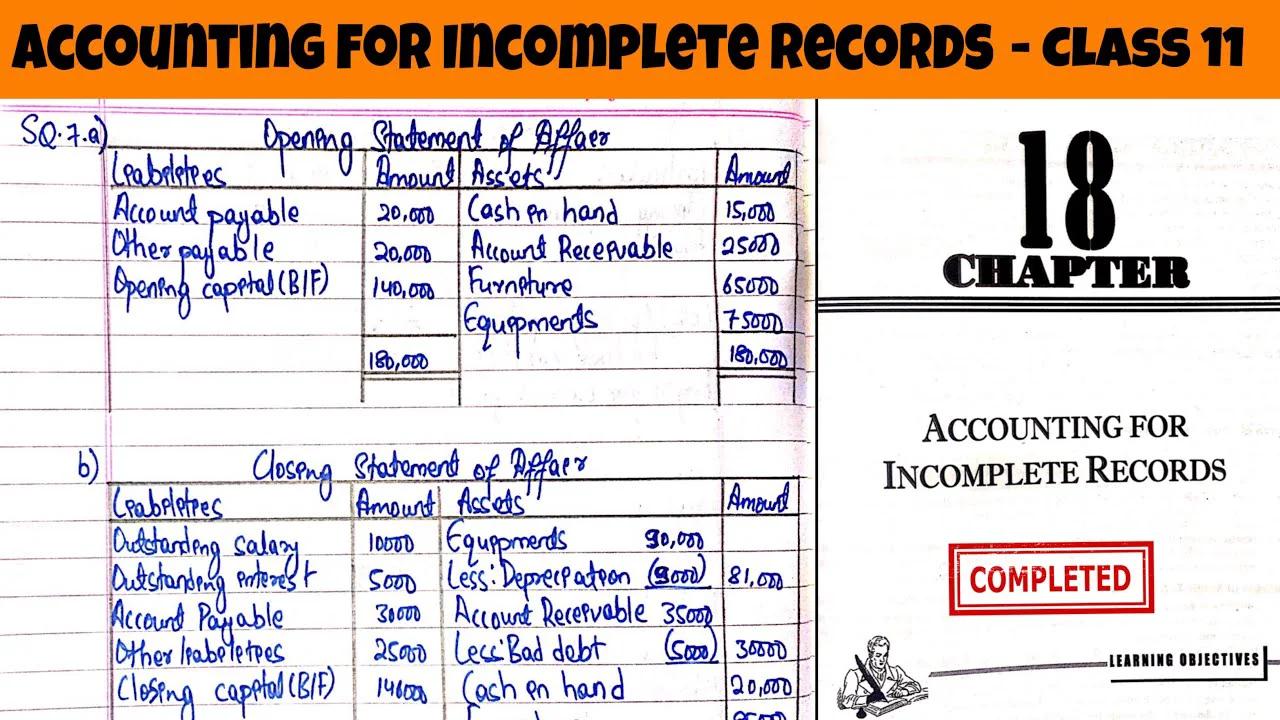 ACCOUNTING FOR INCOMPLETE RECORDS - CLASS 11
SQ.7.a) Opening Statement of Affair
Liabilities Amount Assets Amount
Account payable 20,000 Cash in hand 15,000
Other payable 20,000 Account Receivable 25000
Opening capital (B/F) 140,000 Furniture 65000
Equipments 75000
180,000 180,000
b) Closing Statement of Affair
Liabilities Amount Assets Amount
Outstanding salary 10000 Equipments 90,000
Outstanding interest 5000 Less: Depreciation (9000) 81,000
Account Payable 30000 Account Receivable 35000
Other liabilities 25000 Less: Bad debt (5000) 30000
Closing capital (B/F) 146000 Cash in hand 20,000
18
CHAPTER
ACCOUNTING FOR
INCOMPLETE RECORDS
COMPLETED
LEARNING OBJECTIVES